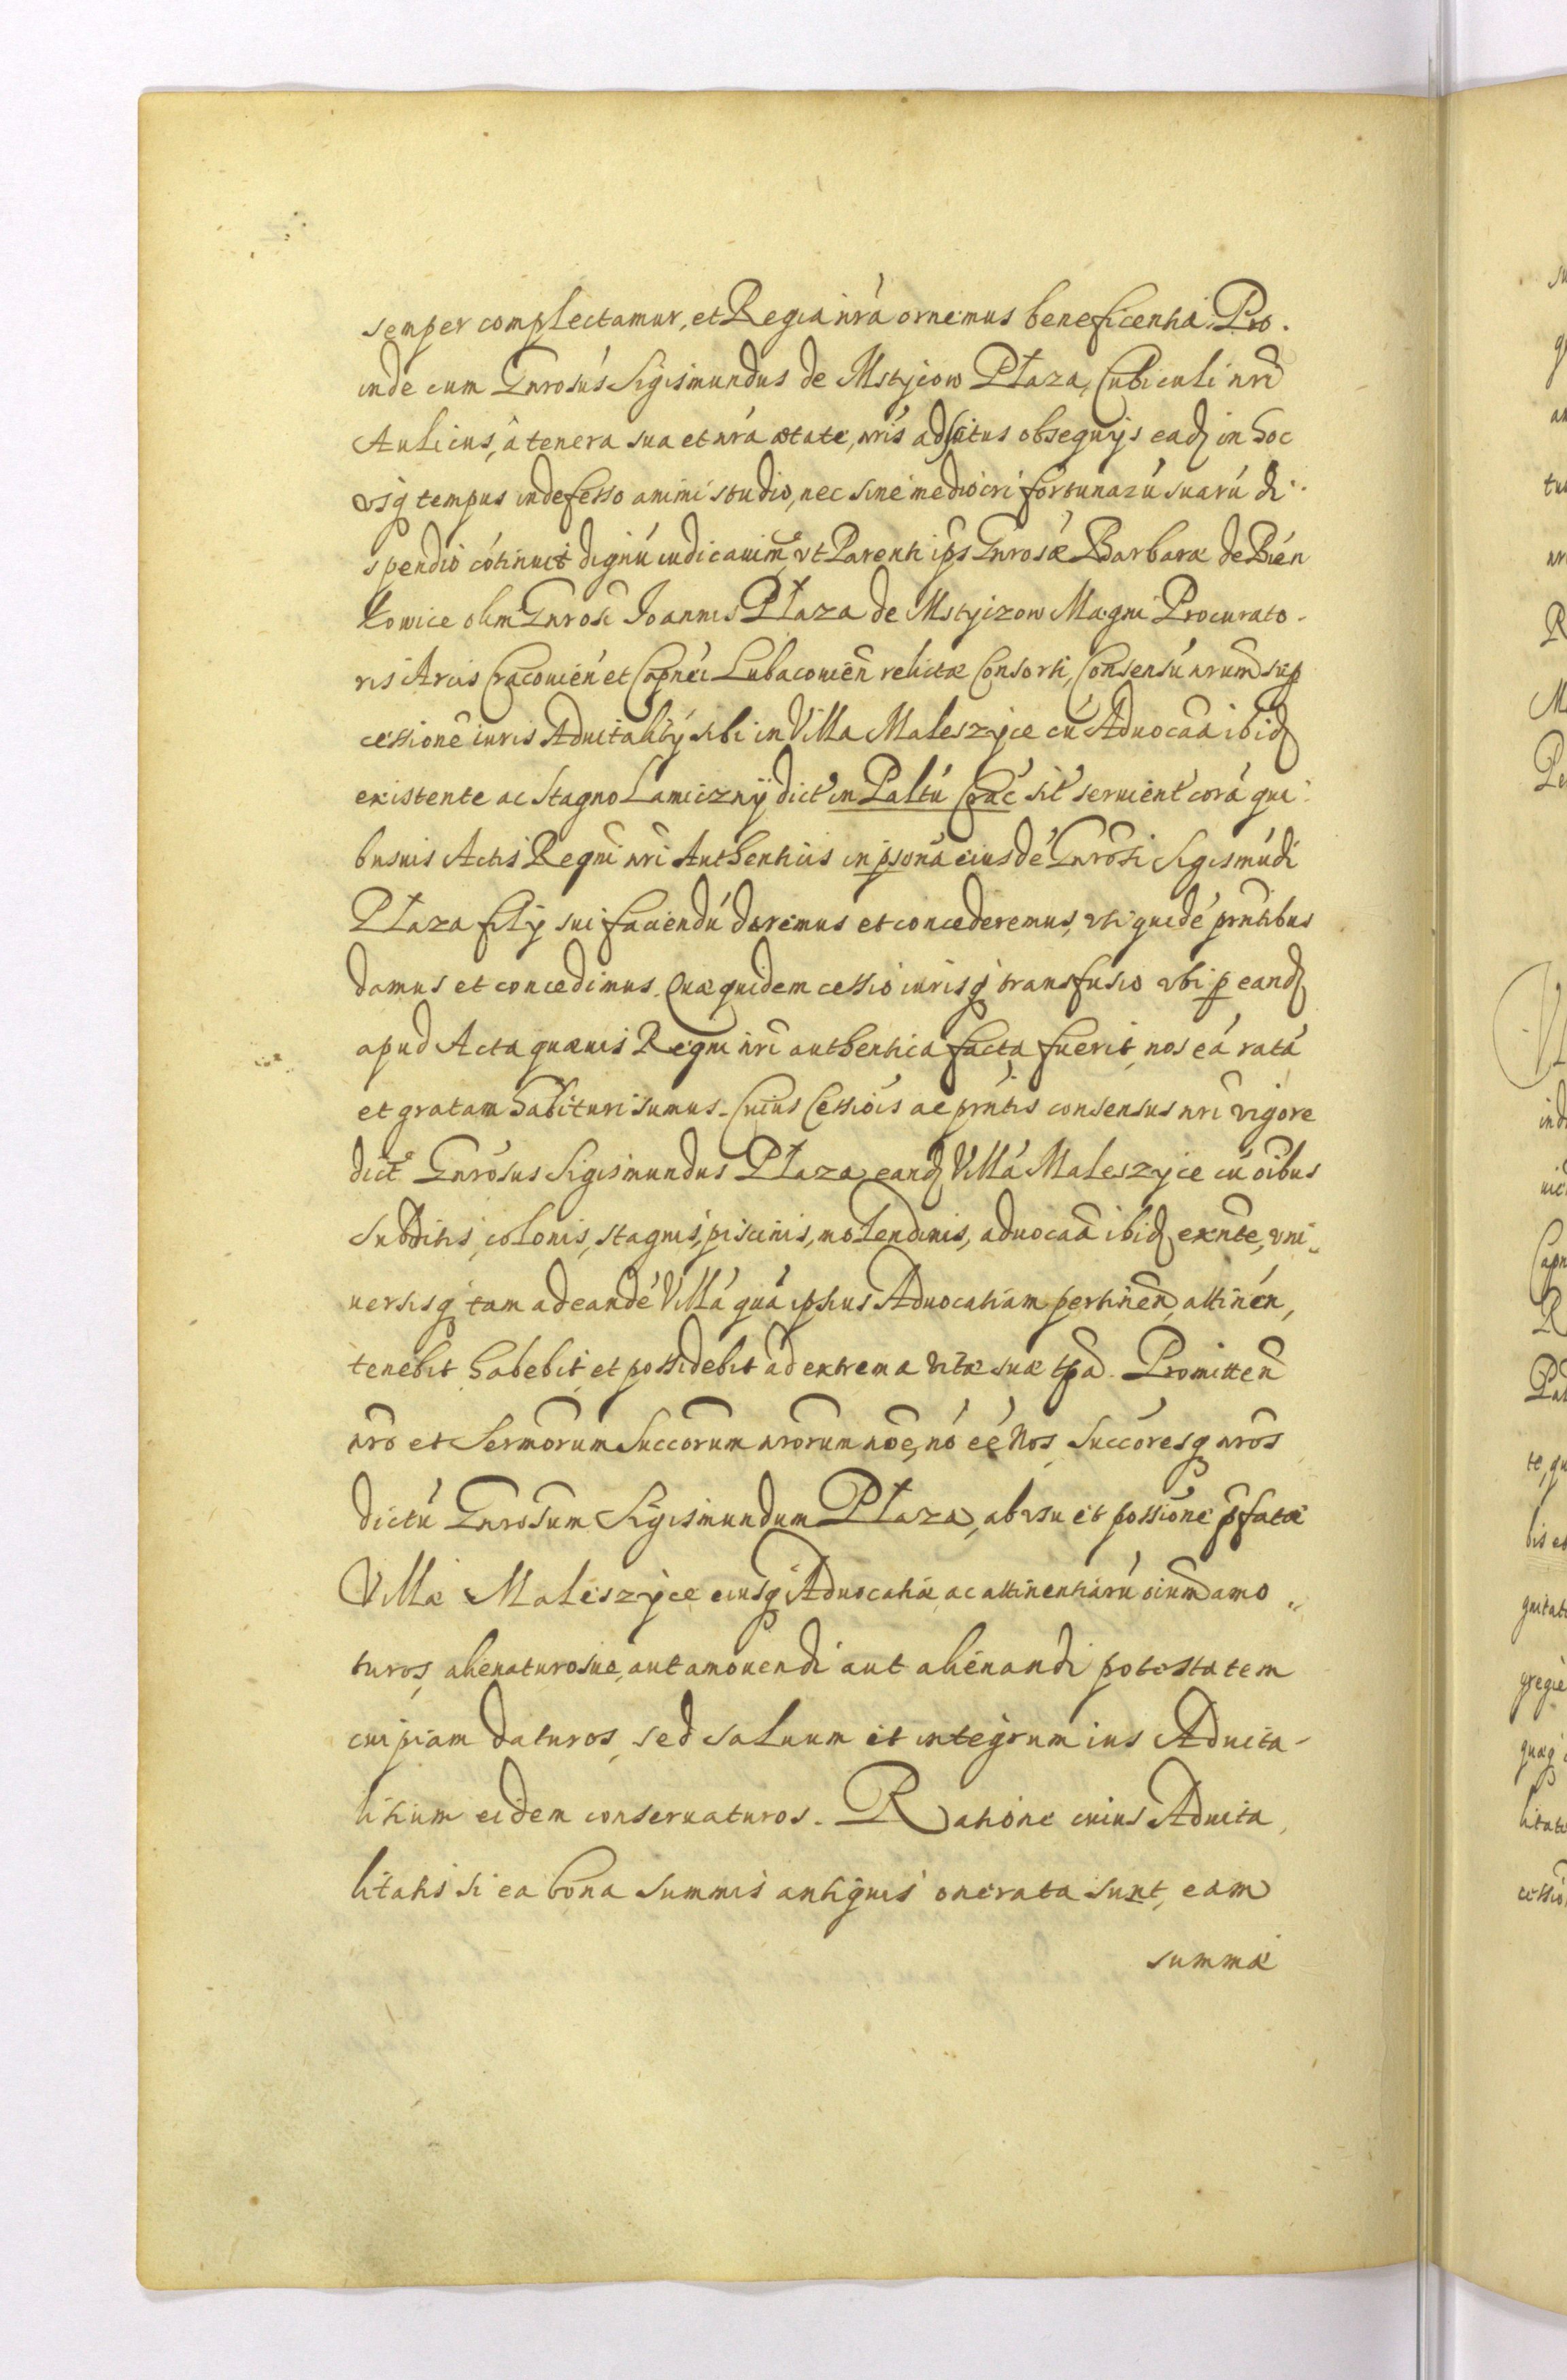 semper complectamur, et Regia nrã ornemus beneficentia. Pro-
inde cum Gnrosus Sigismundus de Mstyiow Płaza, Cubiculi nrĩ
Aulicus, à tenera sua et nrã ætate, nrĩs adscitus obsequijs eadẽ in hoc
vsq tempus indefesso animi studio, nec sine mediocri fortunarũ suarũ di-
spendio cõtinuit dignũ iudicauimꝰ, vt Parenti ips Gnrosæ Barbaræ de Bień
kowice olim Gnrosi Joannis Płaza de Mstyizow Magni Procurato-
ris Arcis Cracouień et Capnei Lubacouień relictæ Consorti, Consensũ nrum sup
cessione iuris Aduitalitÿ sibi in Villa Maleszyce cũ Aduocaã ibid
existente ac Stagno Lamiczny dict in Paltũ Crac sit seruient corã qui-
busuis Actis Regni nrĩ Authenticis in psonã eiusdẽ Gnrosi Sigismũdi
Płaza filÿ sui faciendũ daremus et concederemus, vti quidẽ prntibus
damus et concedimus. Quæ quidem cessio iurisq transfusio vbi p eand
apud Acta quæuis Regni nrĩ authentica facta fuerit, nos eã ratã
et gratam habituri sumus. Cuius Cessiõis ac prntis consensus nrĩ vigore
dictꝰ Gnrosus Sigismundus Płaza, eand Villã Maleszyce cũ oĩbus
Subditis, colonis, stagnis, piscinis, molendinis, aduocaã ibid exnte, vni-
uersisq tam ad eandẽ Villã quã ipsius Aduocatiam pertineñ, attineń,
tenebit habebit et possidebit ad extrema vitæ suæ tpa. Promitteñ
nro et Sermorum Succorum nrorum noẽ, nõ eẽ Nos, Succoresq nros
dictũ Gnrosum Sigismundum Płaza, ab vsu et possione pfatæ
Villæ Maleszyce eiusq Aduocatiæ ac attinentiarũ oium amo-
turos, alienaturosue, aut amouendi aut alienandi potestatem
cuipiam daturos, sed saluum et integrum ius Aduita-
litium eidem conseruaturos. Ratione cuius Aduita
litatis si ea bona summis antiquis onerata sunt, eam
summæ